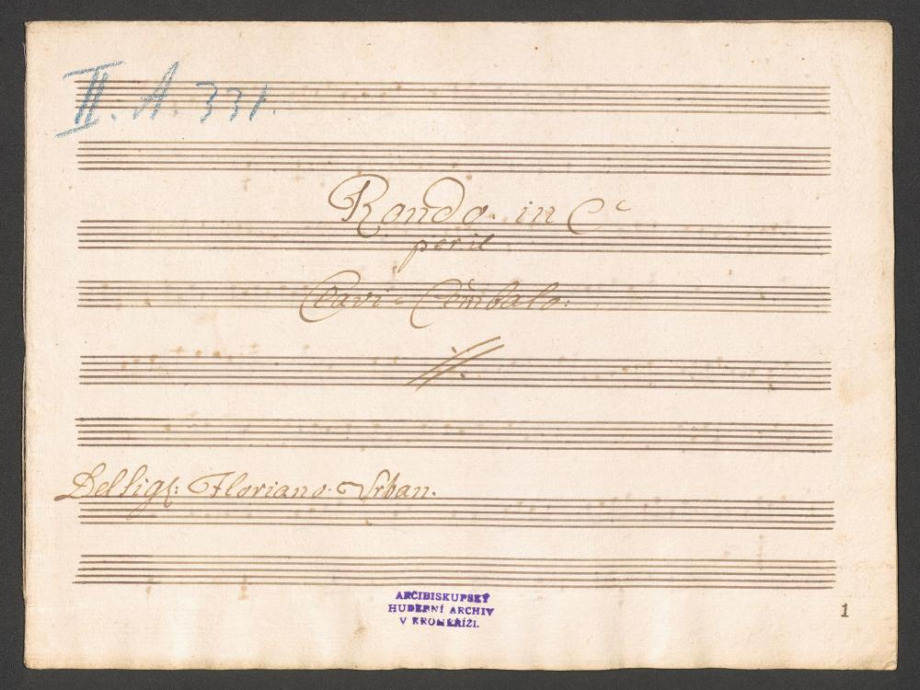 II. A. 331.
Rondo. in C
per il
Clavi = Cembalo:
Del Sig: Floriano Urban.
ARCIBISKUPSKÝ
HUDEBNÍ ARCHIV
V KROMĚŘÍŽI.
1